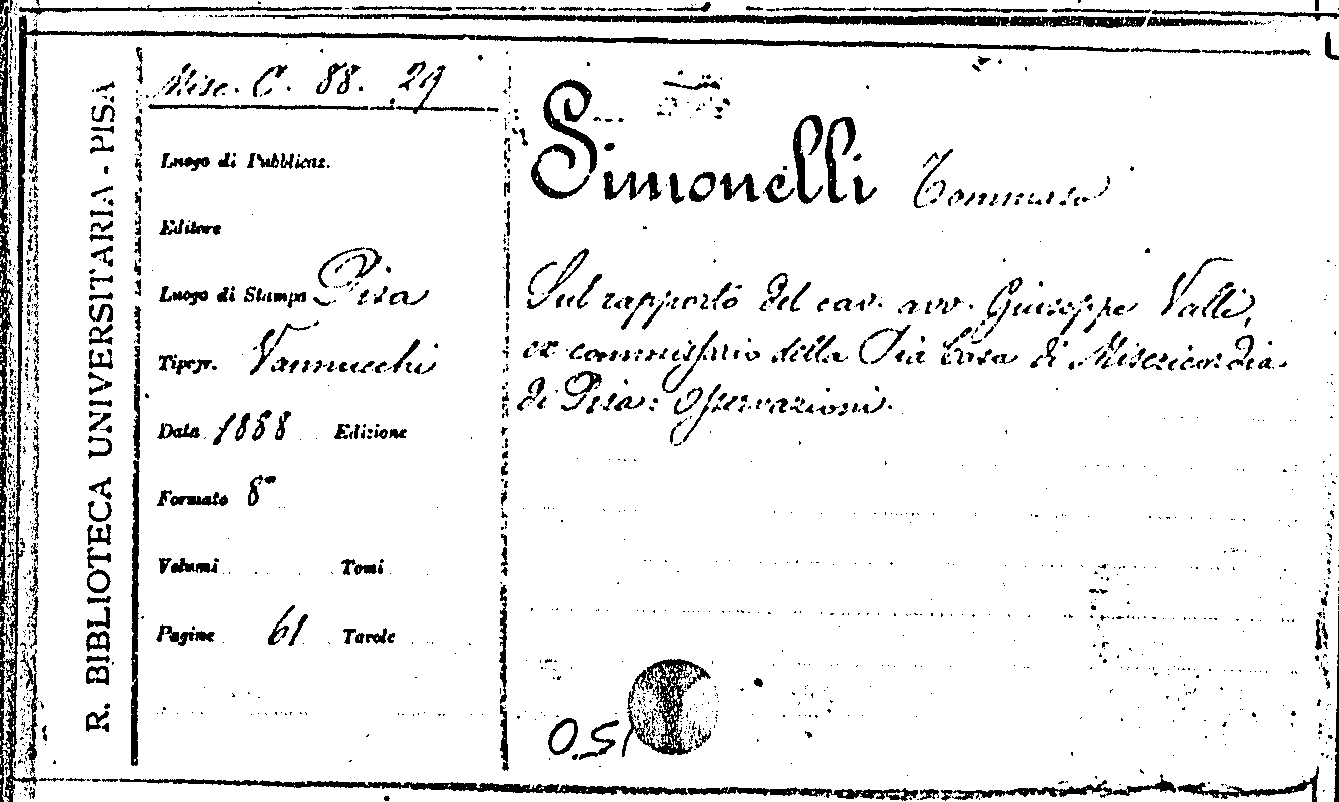 R. BIBLIOTECA UNIVERSITARIA - PISA
Misc. C. 88. 29
Luogo di Pubblicaz.
Editore
Luogo di Stampa Pisa
Tipogr. Vannucchi
Data 1888 Edizione
Formato 8°
Volumi Tomi
Pagine 61 Tavole
Simonelli Tommaso
Sul rapporto del cav. avv. Giuseppe Valli,
ex commissario della Pia Casa di Misericordia
di Pisa: Osservazioni.
O.S.